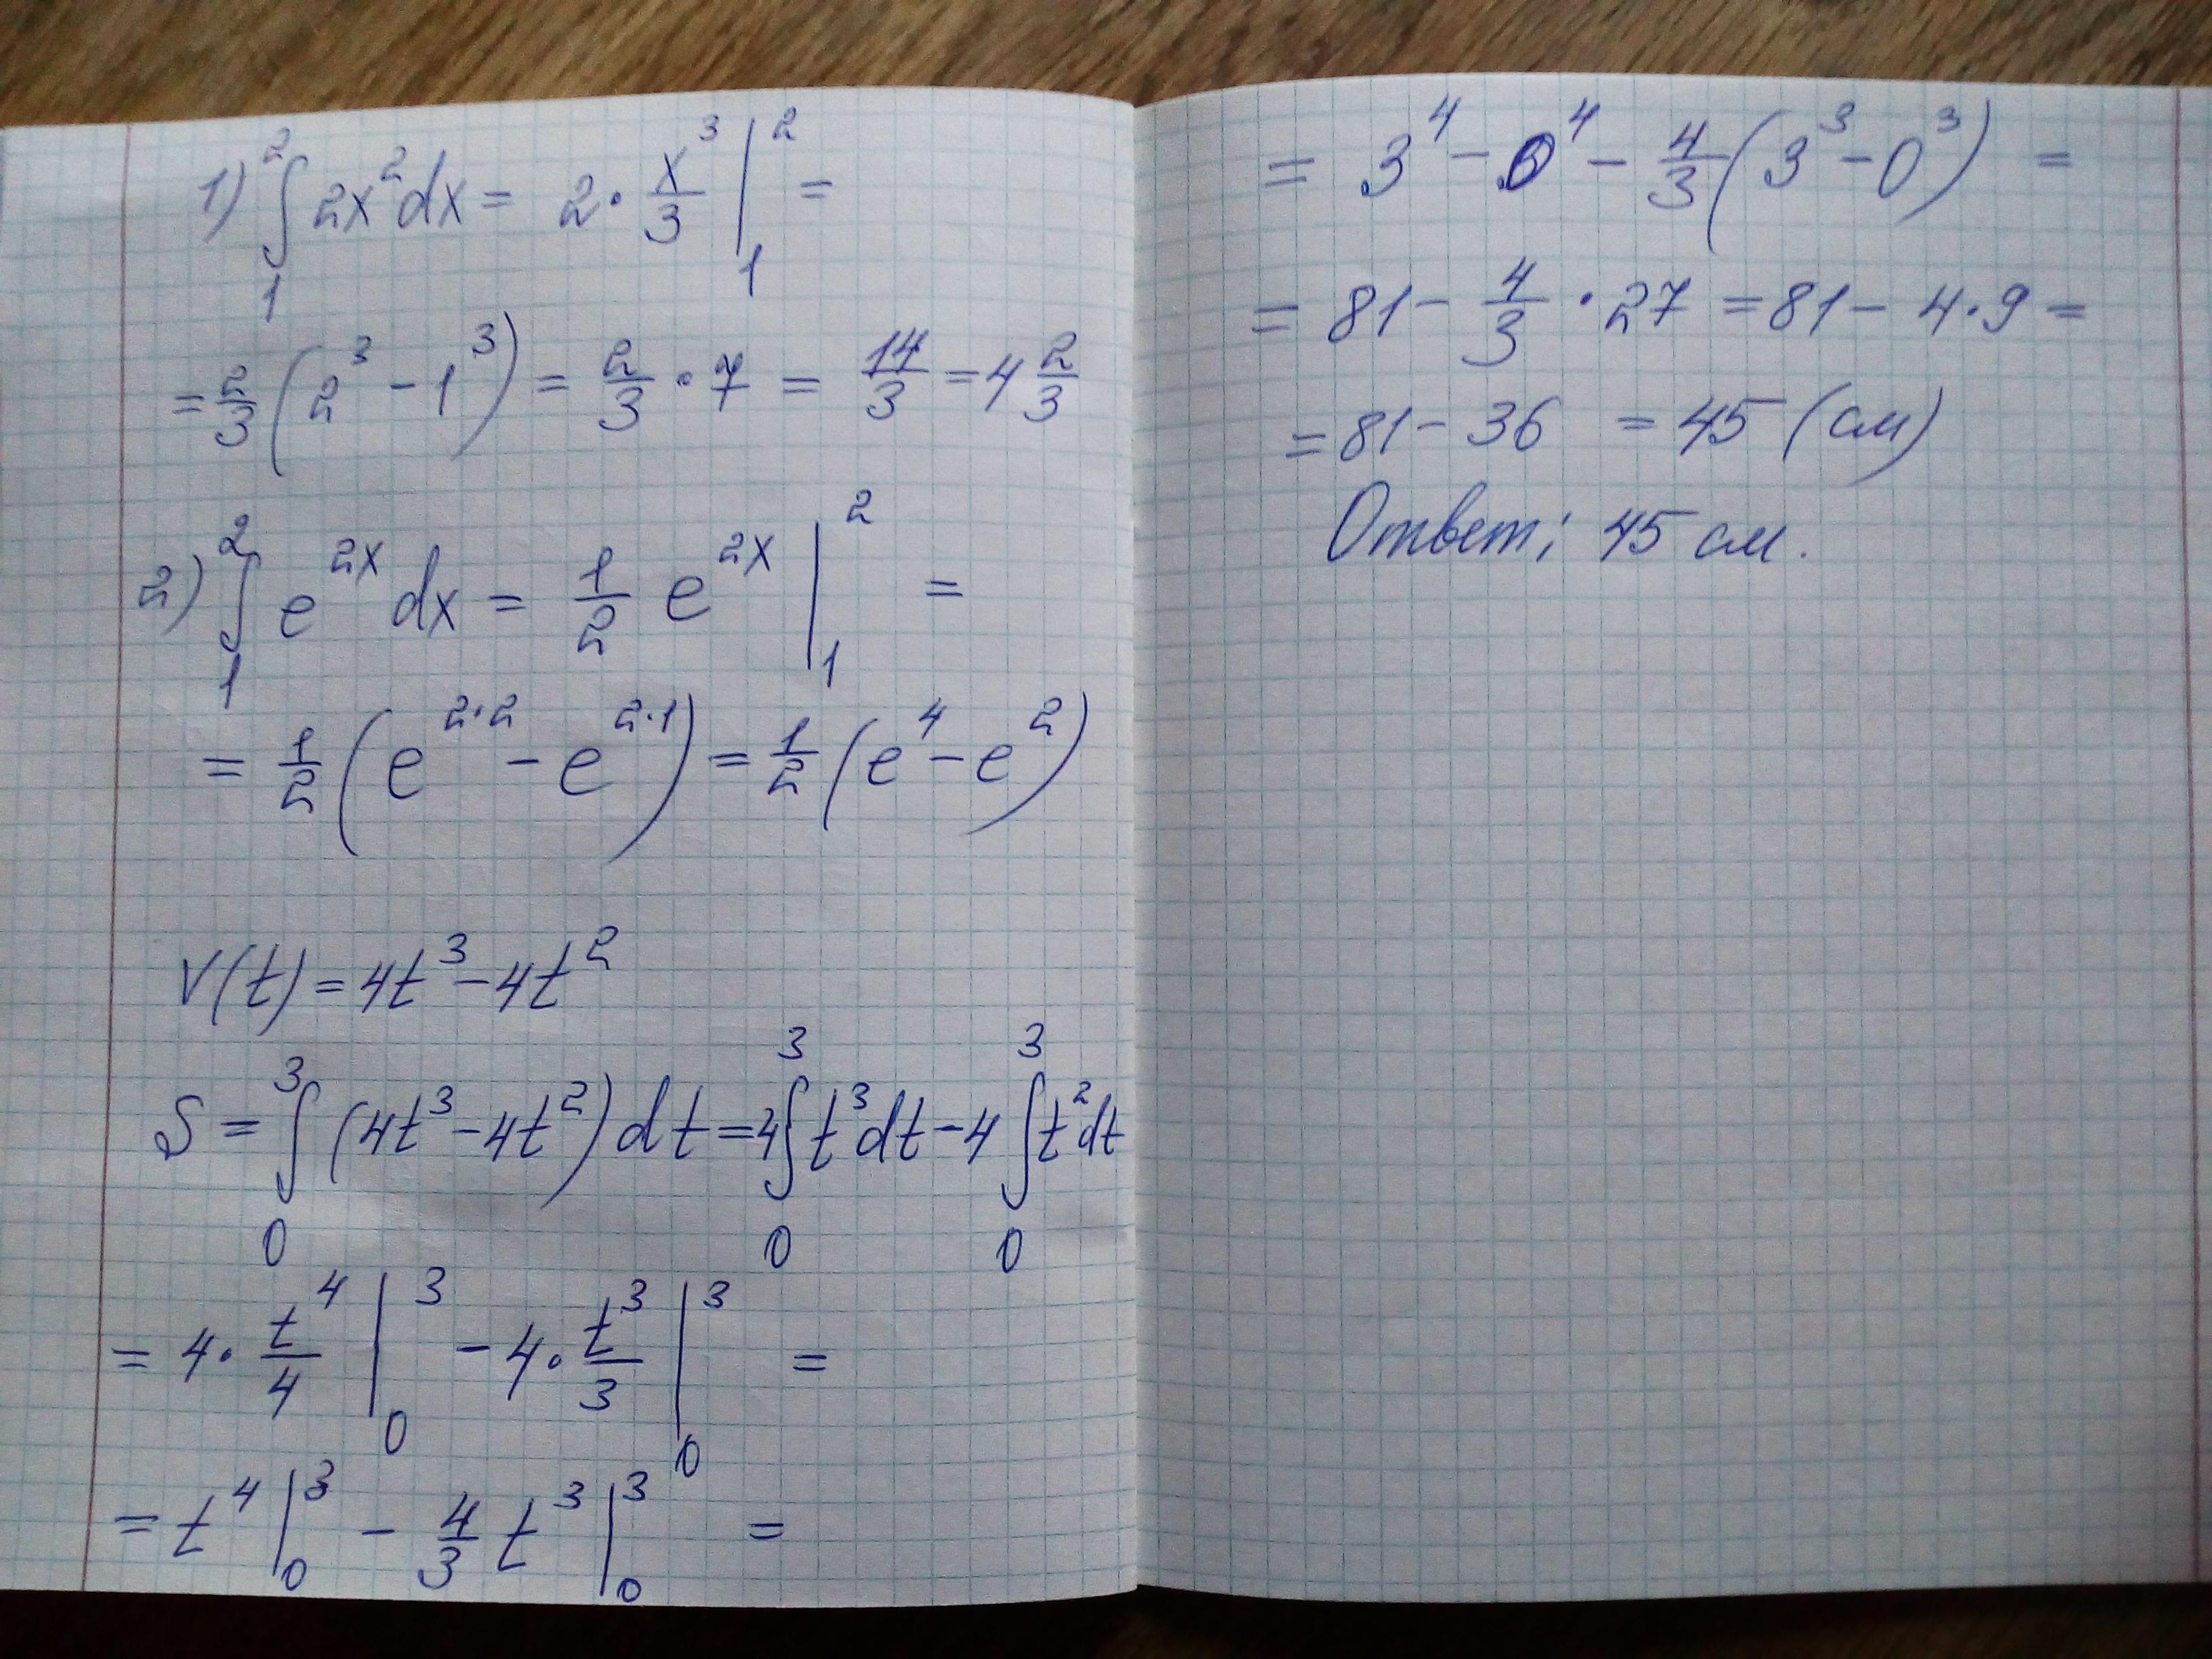 1) ∫₁² 2x² dx = 2 · x³/3 |₁² =
= 2/3 (2³ - 1³) = 2/3 · 7 = 14/3 = 4 2/3
2) ∫₁² e^(2x) dx = 1/2 e^(2x) |₁² =
= 1/2 (e^(2·2) - e^(2·1)) = 1/2 (e⁴ - e²)
V(t) = 4t³ - 4t²
S = ∫₀³ (4t³ - 4t²) dt = 4∫₀³ t³ dt - 4 ∫₀³ t² dt
= 4 · t⁴/4 |₀³ - 4 · t³/3 |₀³ =
= t⁴ |₀³ - 4/3 t³ |₀³ =
= 3⁴ - 0⁴ - 4/3 (3³ - 0³) =
= 81 - 4/3 · 27 = 81 - 4·9 =
= 81 - 36 = 45 (см)
Ответ: 45 см.